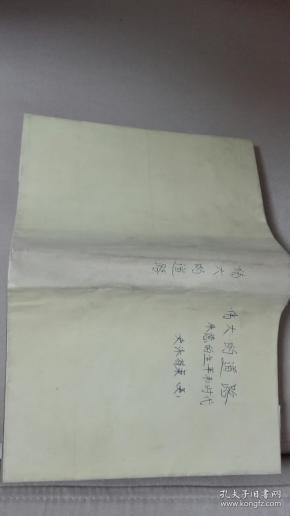 伟大的道路
伟大的道路
朱德的生平和时代
史沫特莱(美)
孔夫子旧书网